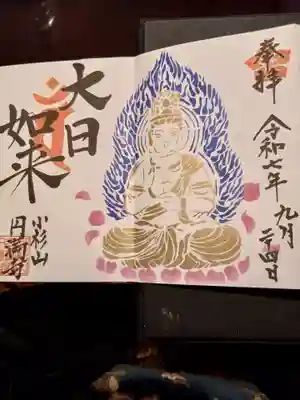 奉拝
令和七年九月
二十四日
大日
如来
小杉山
円満寺